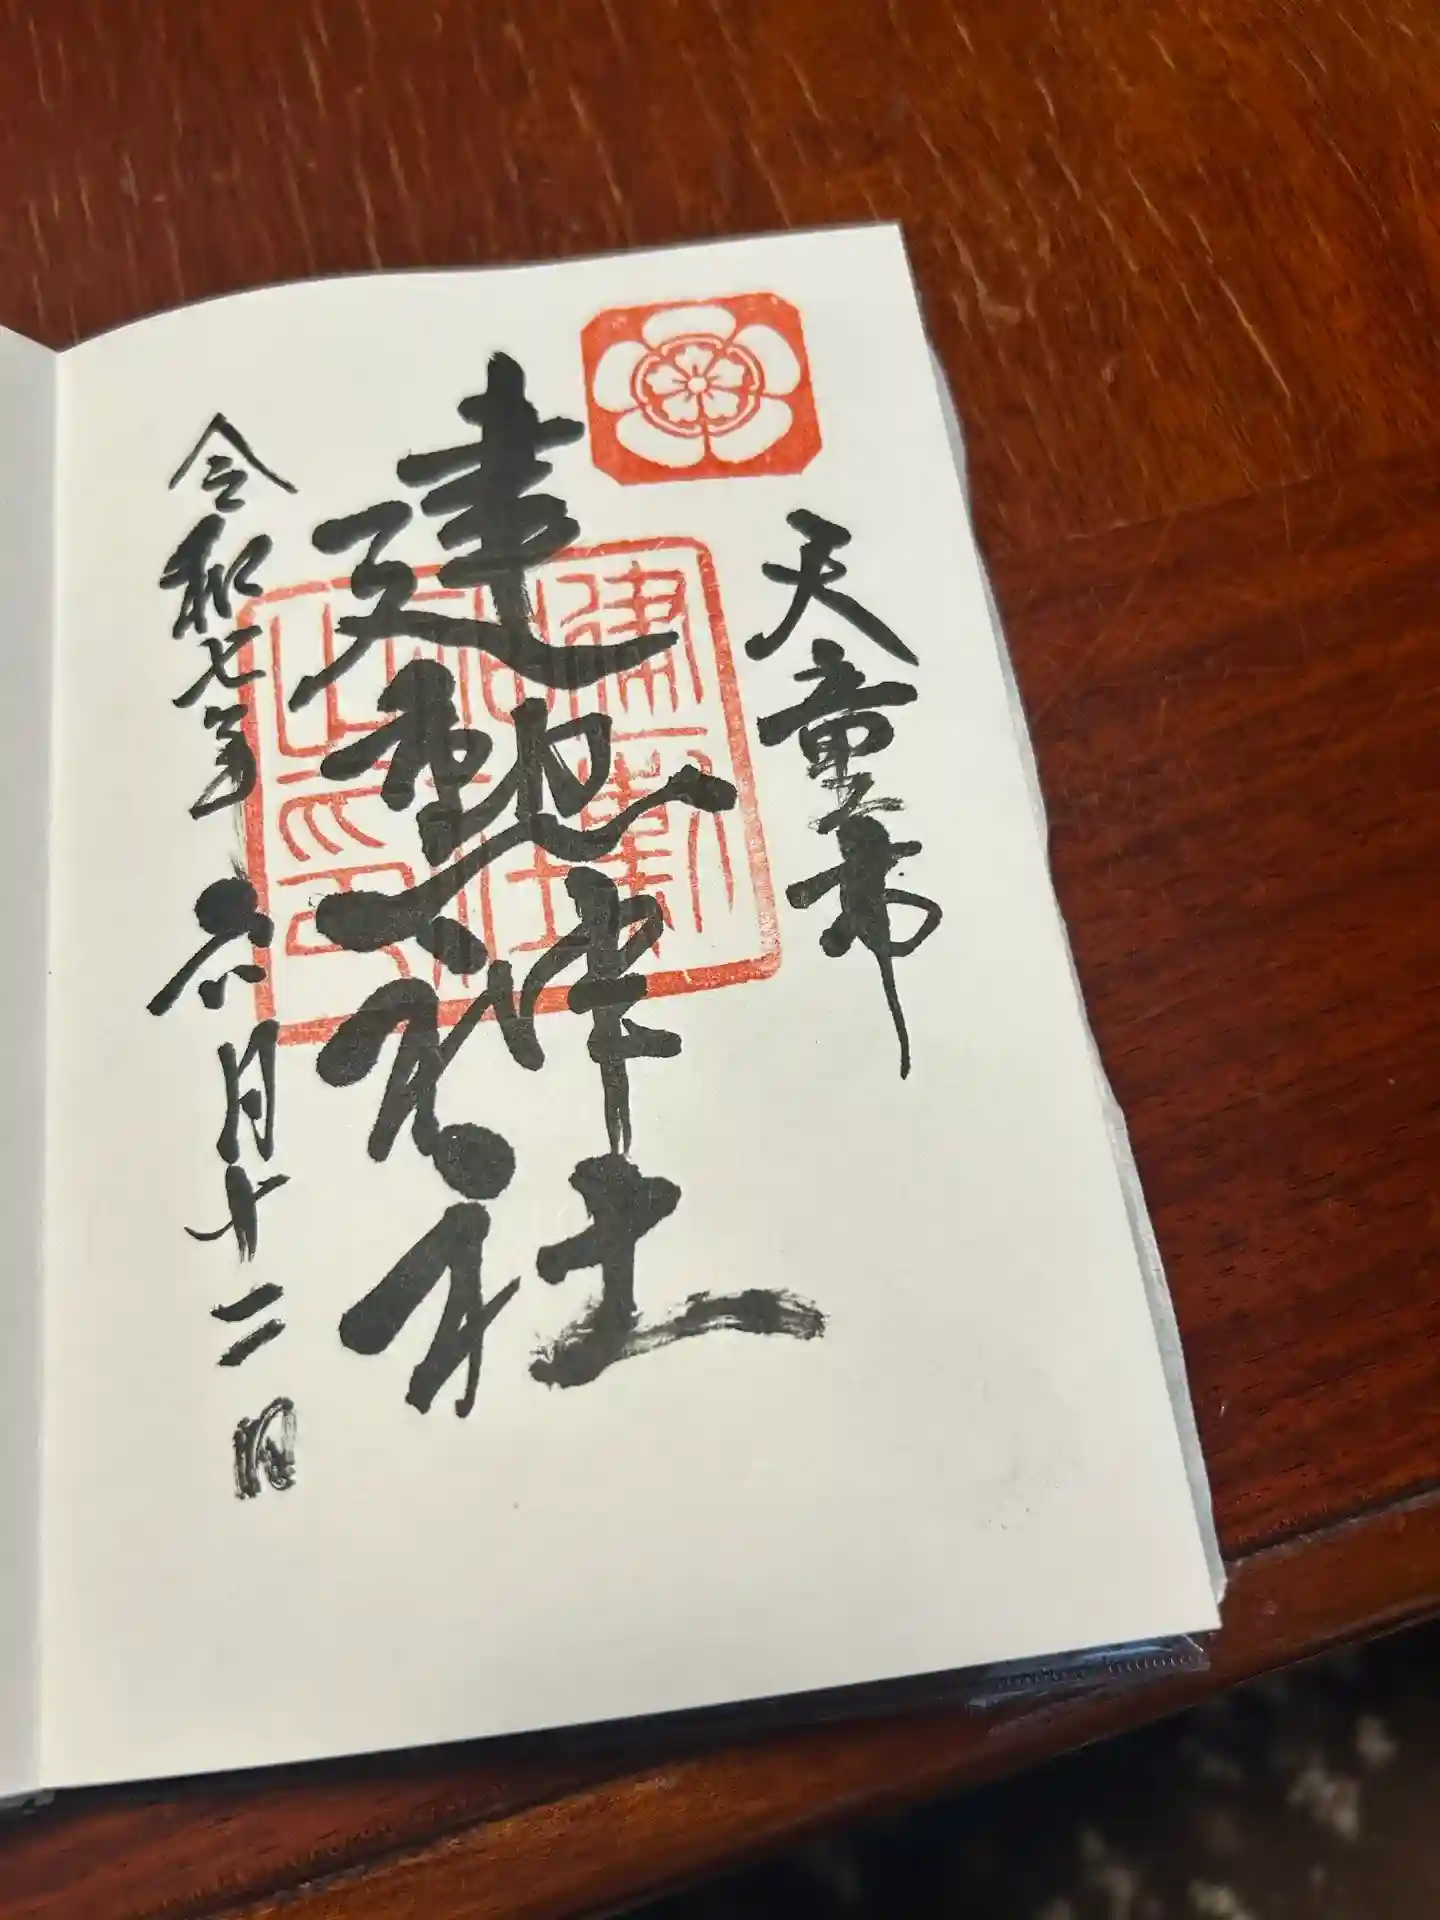 天童市
建勲神社
令和七年六月十二日
建勳
神社
之印